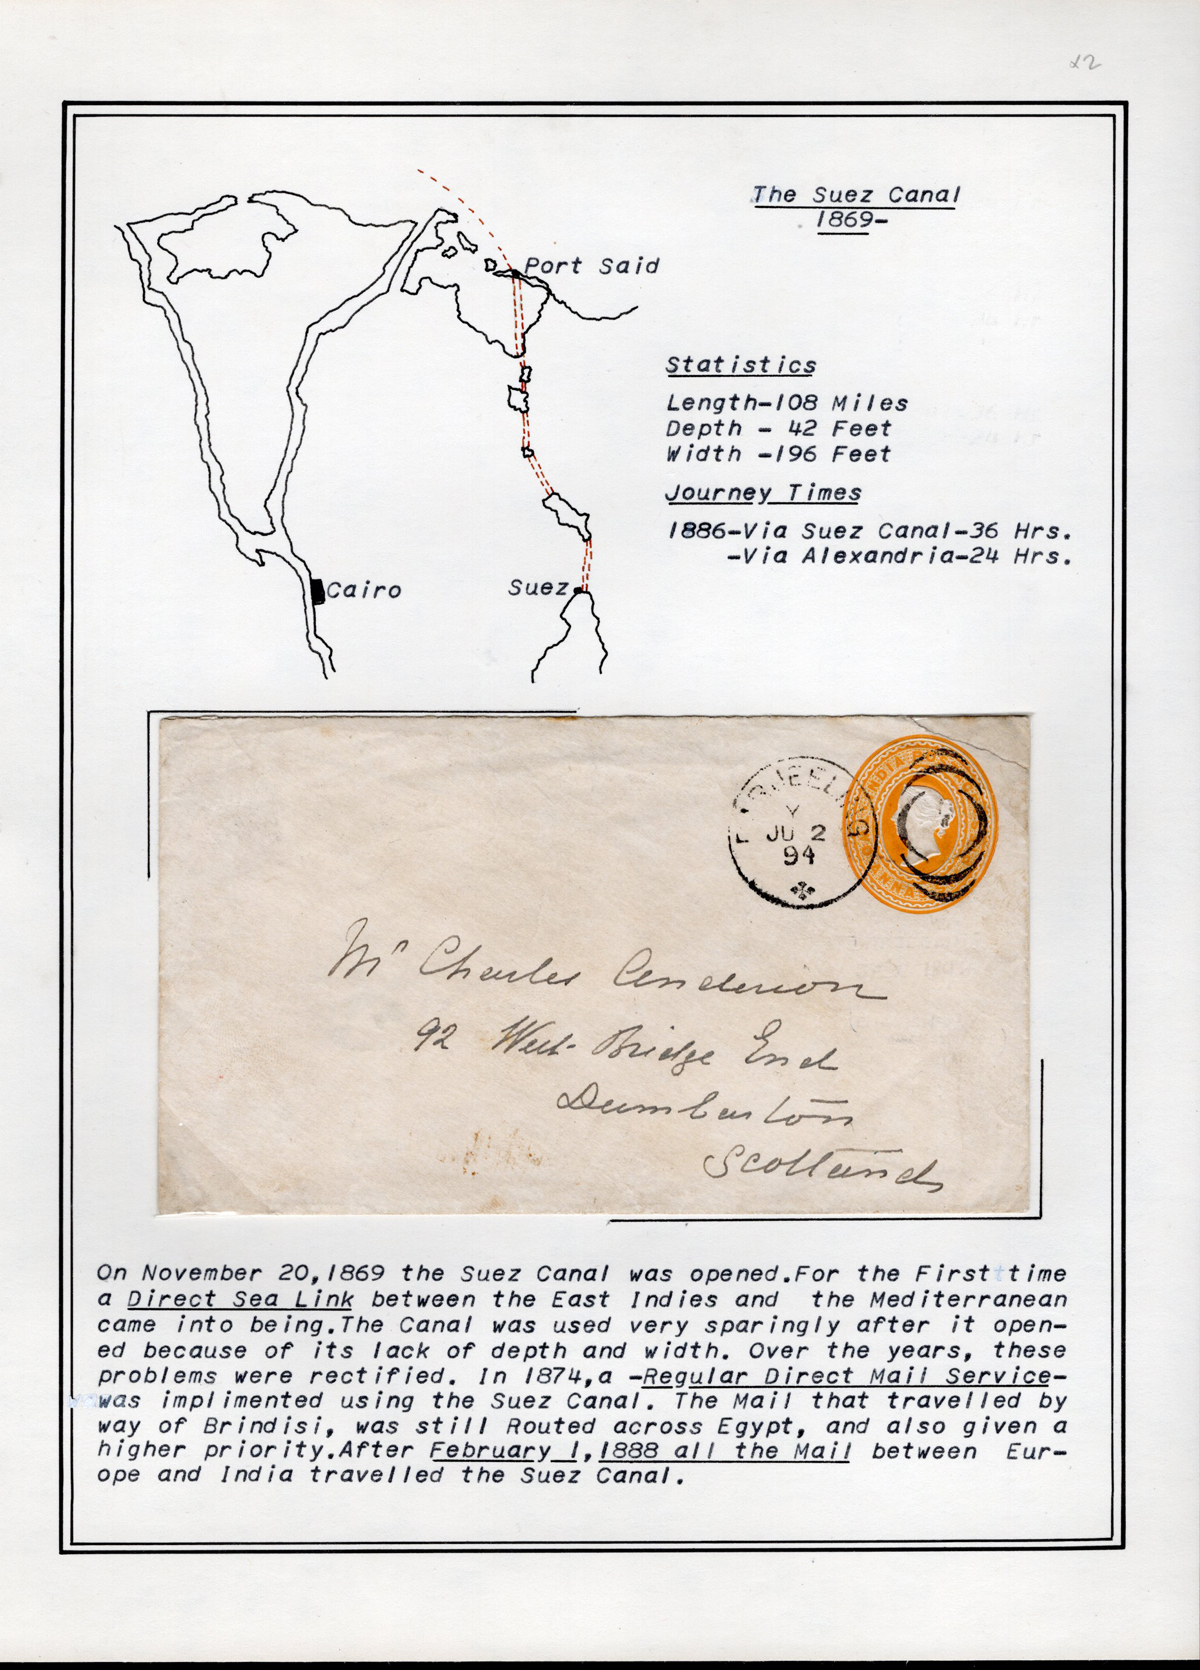 22
The Suez Canal
1869-
Port Said
Statistics
Length-108 Miles
Depth - 42 Feet
Width -196 Feet
Journey Times
1886-Via Suez Canal-36 Hrs.
-Via Alexandria-24 Hrs.
Cairo
Suez
JU 2
94
INDIA
Mr Charles Anderson
92 West Bridge End
Dumbarton
Scotland
On November 20,1869 the Suez Canal was opened.For the First time
a Direct Sea Link between the East Indies and the Mediterranean
came into being.The Canal was used very sparingly after it open-
ed because of its lack of depth and width. Over the years, these
problems were rectified. In 1874,a -Regular Direct Mail Service-
was implimented using the Suez Canal. The Mail that travelled by
way of Brindisi, was still Routed across Egypt, and also given a
higher priority.After February 1,1888 all the Mail between Eur-
ope and India travelled the Suez Canal.